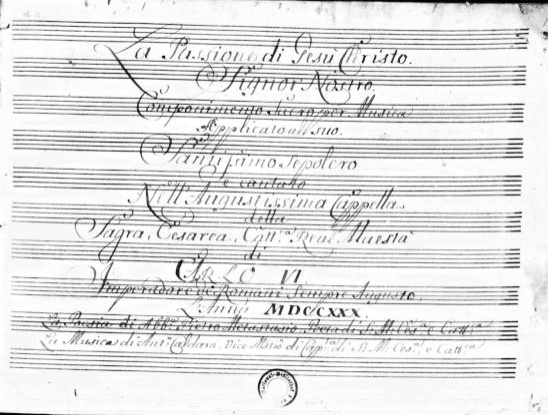 La Passione di Gesù Christo.
Signor Nostro.
Componimento Sacro per Musica
Applicato al suo.
Santissimo Sepolcro
e cantato
Nell' Augustissima Cappella
della
Sagra, Cesarea, Catt.ca Real Maestà
di
CARLO VI
Imperadore de' Romani Sempre Augusto,
L'Anno MDCCXXX.
La Poesia di Abb.e Pietro Metastasio Poeta di S. M. Ces.a e Catt.ca
La Musica di Ant.o Caldara, Vice Mstro di Cap.la di S. M. Ces.a, e Catt.ca